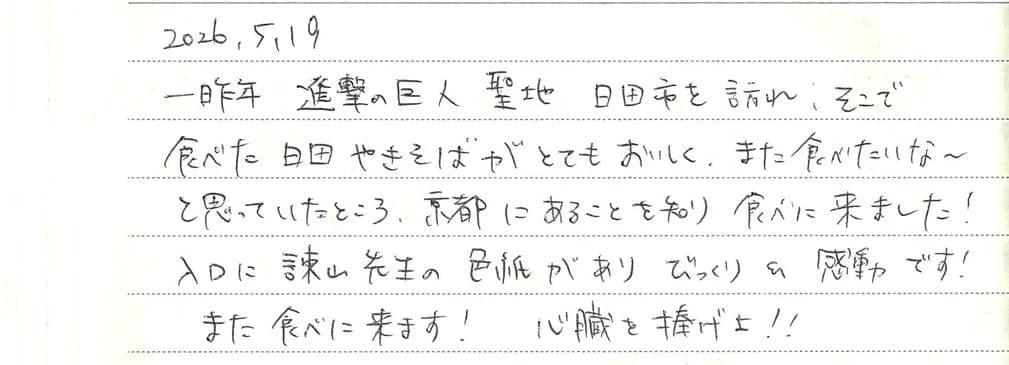 2026.5.19
一昨年 進撃の巨人 聖地 日田市を訪れ、そこで
食べた 日田 やきそばがとてもおいしく、また食べたいな～
と思っていたところ、京都にあることを知り 食べに来ました!
入口に 諫山先生の 色紙があり びっくり& 感動です!
また食べに来ます! 心臓を捧げよ!!